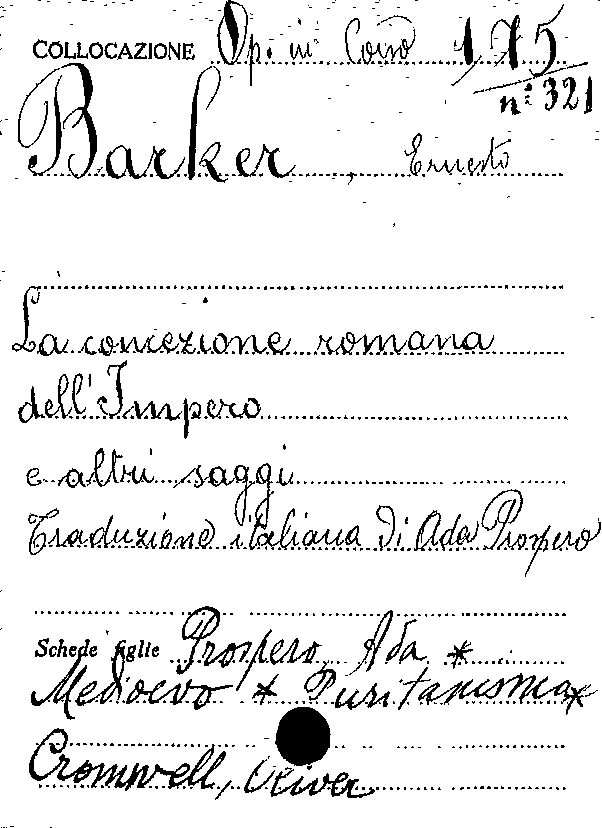 COLLOCAZIONE Op. in Corso 175
n: 321
Barker, Ernesto
La concezione romana
dell'Impero
e altri saggi
Traduzione italiana di Ada Prospero
Schede figlie Prospero, Ada *
Medioevo * Puritanismo *
Cromwell, Oliver